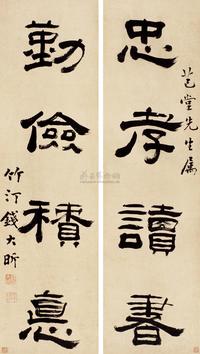 芑堂先生屬
忠孝讀書
勤儉積悳
竹汀錢大昕